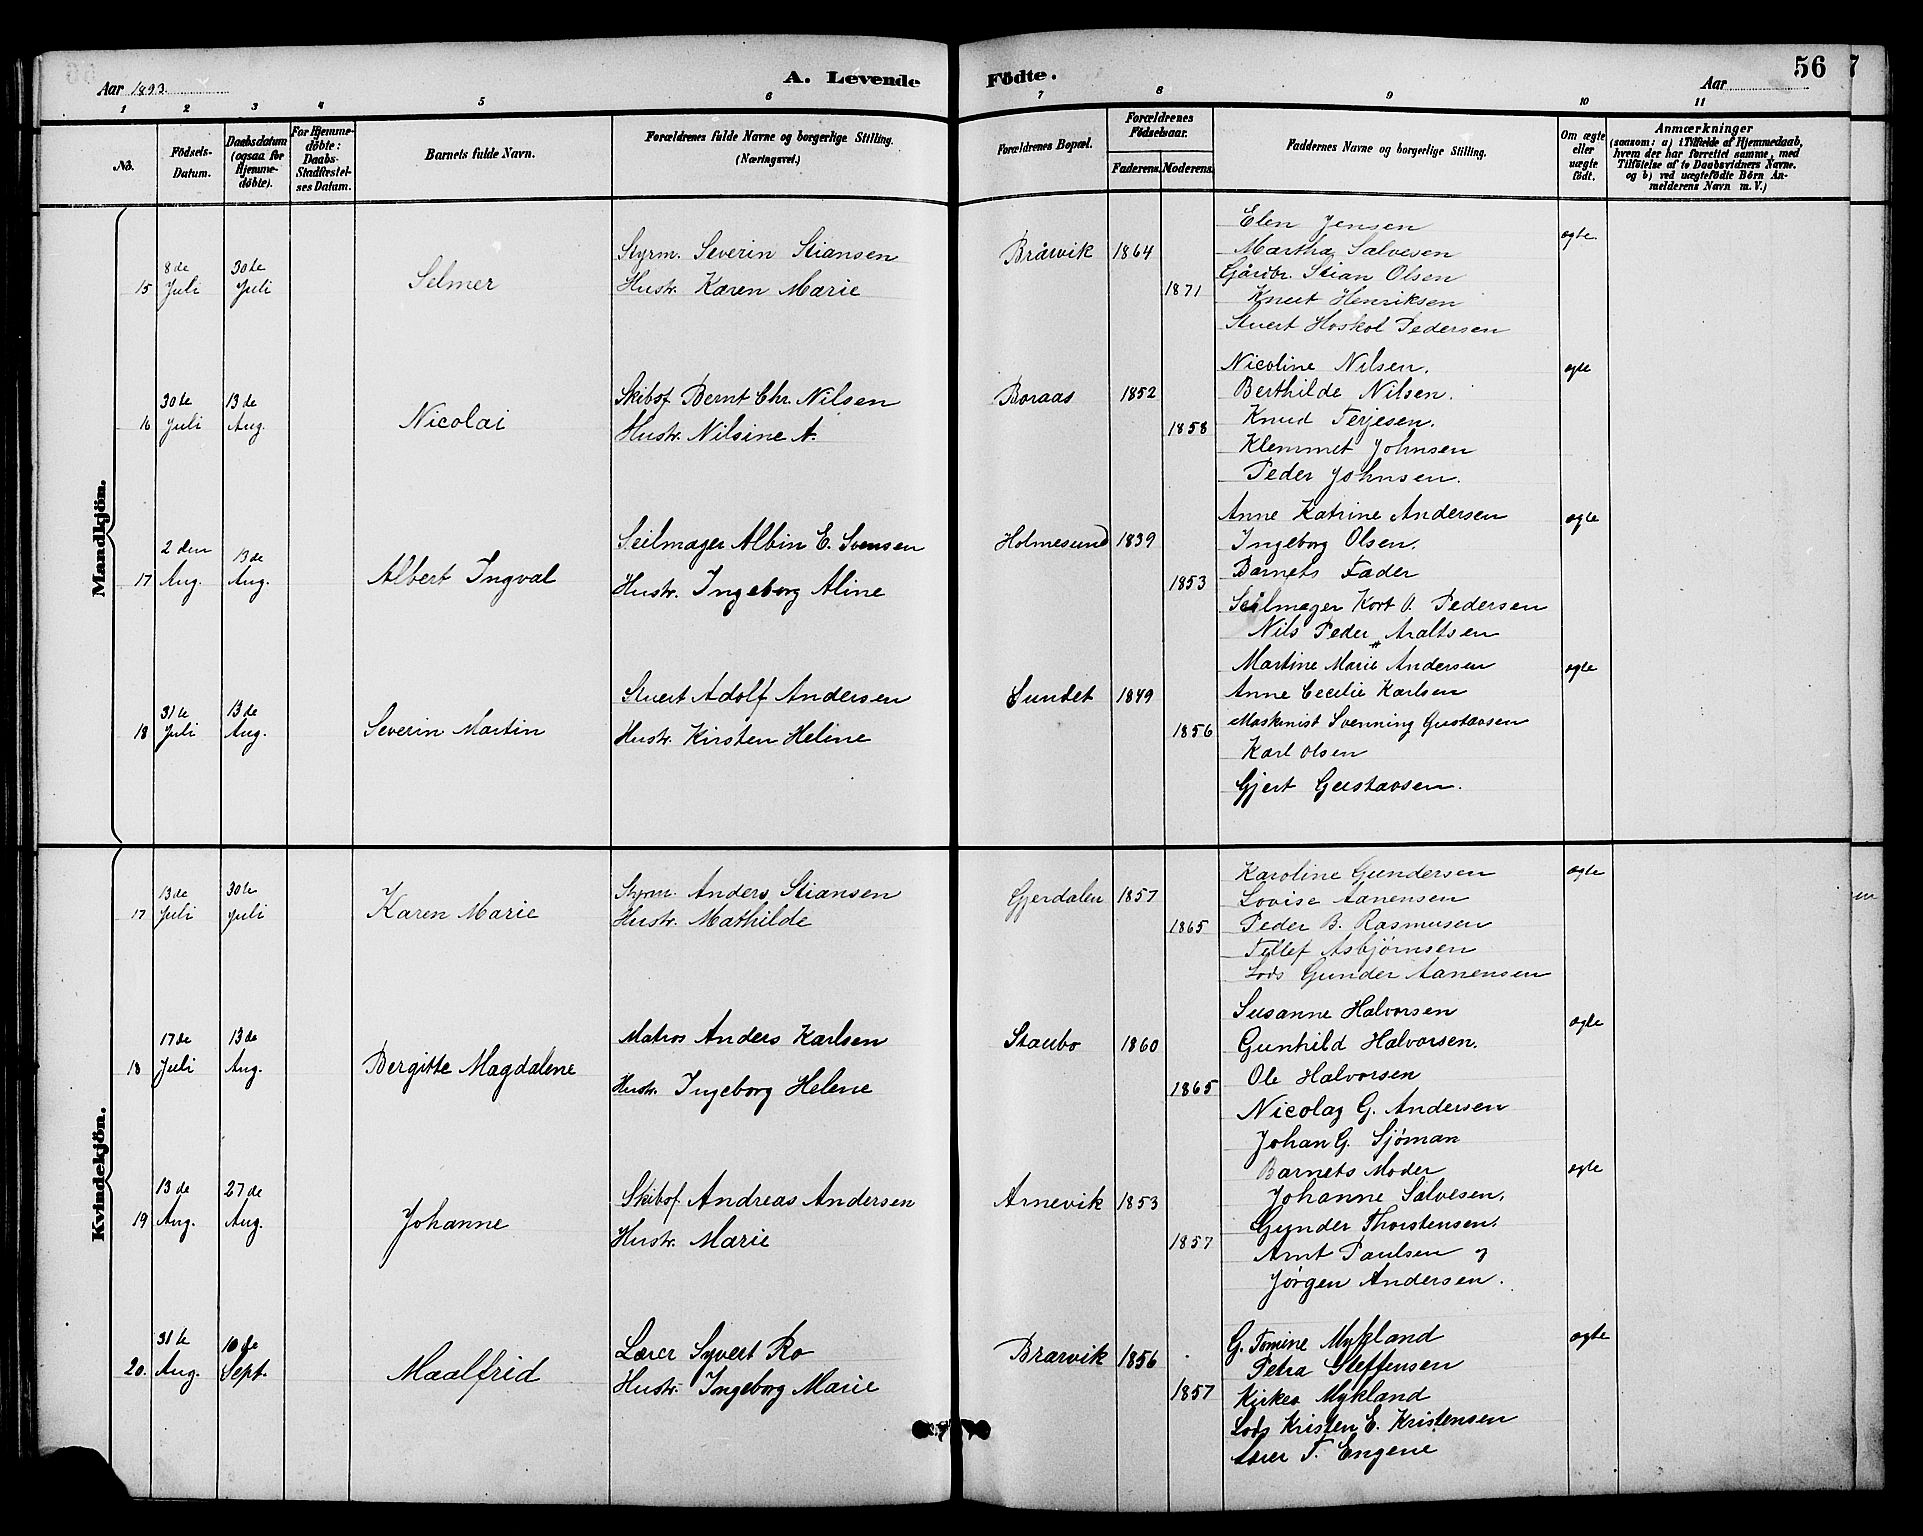 Aar 1893
A. Levende
Födte.
Aar
56
1 2 3 4 5 6 7 8 9 10 11
No.
Födsels-
Datum.
Daabsdatum
(ogsaa for
Hjemme-
döbte).
For Hjemme-
döbte:
Daabs-
Stadfæstel-
ses Datum.
Barnets fulde Navn.
Forældrenes fulde Navne og borgerlige Stilling.
(Næringsvei.)
Forældrenes Bopæl.
Forældrenes
Födselsaar.
Faderens. Moderens.
Faddernes Navne og borgerlige Stilling.
Om ægte
eller
uægte
födt.
Anmærkninger
(saasom: a) i Tilfælde af Hjemmedaab,
hvem der har forrettet samme, med
Tilföielse af to Daabsvidners Navne.
og b) ved uægtefödte Börn An-
melderens Navn m. V.)
Mandkjön.
15 8de Juli 30te Juli Selmer
Styrm. Severin Stiansen
Hustr. Karen Marie
Bråvik 1864 1871
Elen Jensen
Martha Salvesen
Gårdbr. Stian Olsen
Knut Henriksen
Stuert Hoskol Pedersen
ægte
16 30te Juli 13de Aug. Nicolai
Skibsf. Bernt Chr. Nilsen
Hustr. Nilsine A.
Boraas 1852 1858
Nicoline Nilsen.
Berthilde Nilsen.
Knud Terjesen.
Klemmet Johnsen
Peder Johnsen.
ægte
17 2den Aug. 13de Aug. Albert Ingval
Seilmager Albin E. Svensen
Hustr. Ingeborg Aline
Holmesund 1839 1853
Anne Katrine Andersen
Ingeborg Olsen.
Barnets Fader
Seilmager Kort O. Pedersen
Nils Peder Araltsen
ægte
18 31te Juli 13de Aug. Severin Martin
Stuert Adolf Andersen
Hustr. Kirsten Heline
Sundet 1849 1856
Martine Marie Andersen
Anne Cecilie Karlsen
Maskinist Svenning Gustavsen
Karl Olsen
Gjert Gustavsen.
ægte
Kvindekjön.
17 13de Juli 30te Juli Karen Marie
Styrm. Anders Stiansen
Hustr. Mathilde
Gjerdalen 1857 1865
Karoline Gundersen
Lovise Aanensen
Peder B. Rasmusen
Tellef Asbjørnsen
Lods Gunder Aanensen
ægte
18 17de Juli 13de Aug. Bergitte Magdalene
Matros Anders Karlsen
Hustr. Ingeborg Helene
Staubo 1860 1865
Susanne Halvorsen
Gunhild Halvorsen.
Ole Halvorsen
Nicolay G. Andersen
Johan G. Sjöman
ægte
19 13de Aug. 27de Aug. Johanne
Skibsf. Andreas Andersen
Hustr. Marie
Arnevik 1853 1857
Barnets Moder
Johanne Salvesen.
Gunder Thorstensen.
Arnt Paulsen og
Jørgen Andersen.
ægte
20. 31te Aug. 10de Sept. Maalfrid
Lærer Syvert Ro
Hustr. Ingeborg Marie
Brarvik 1856 1857
G. Tomine Mykland
Petra Steffensen
Kirkes. Mykland
Lods Kristen E. Kristensen
Lærer T. Engene
ægte